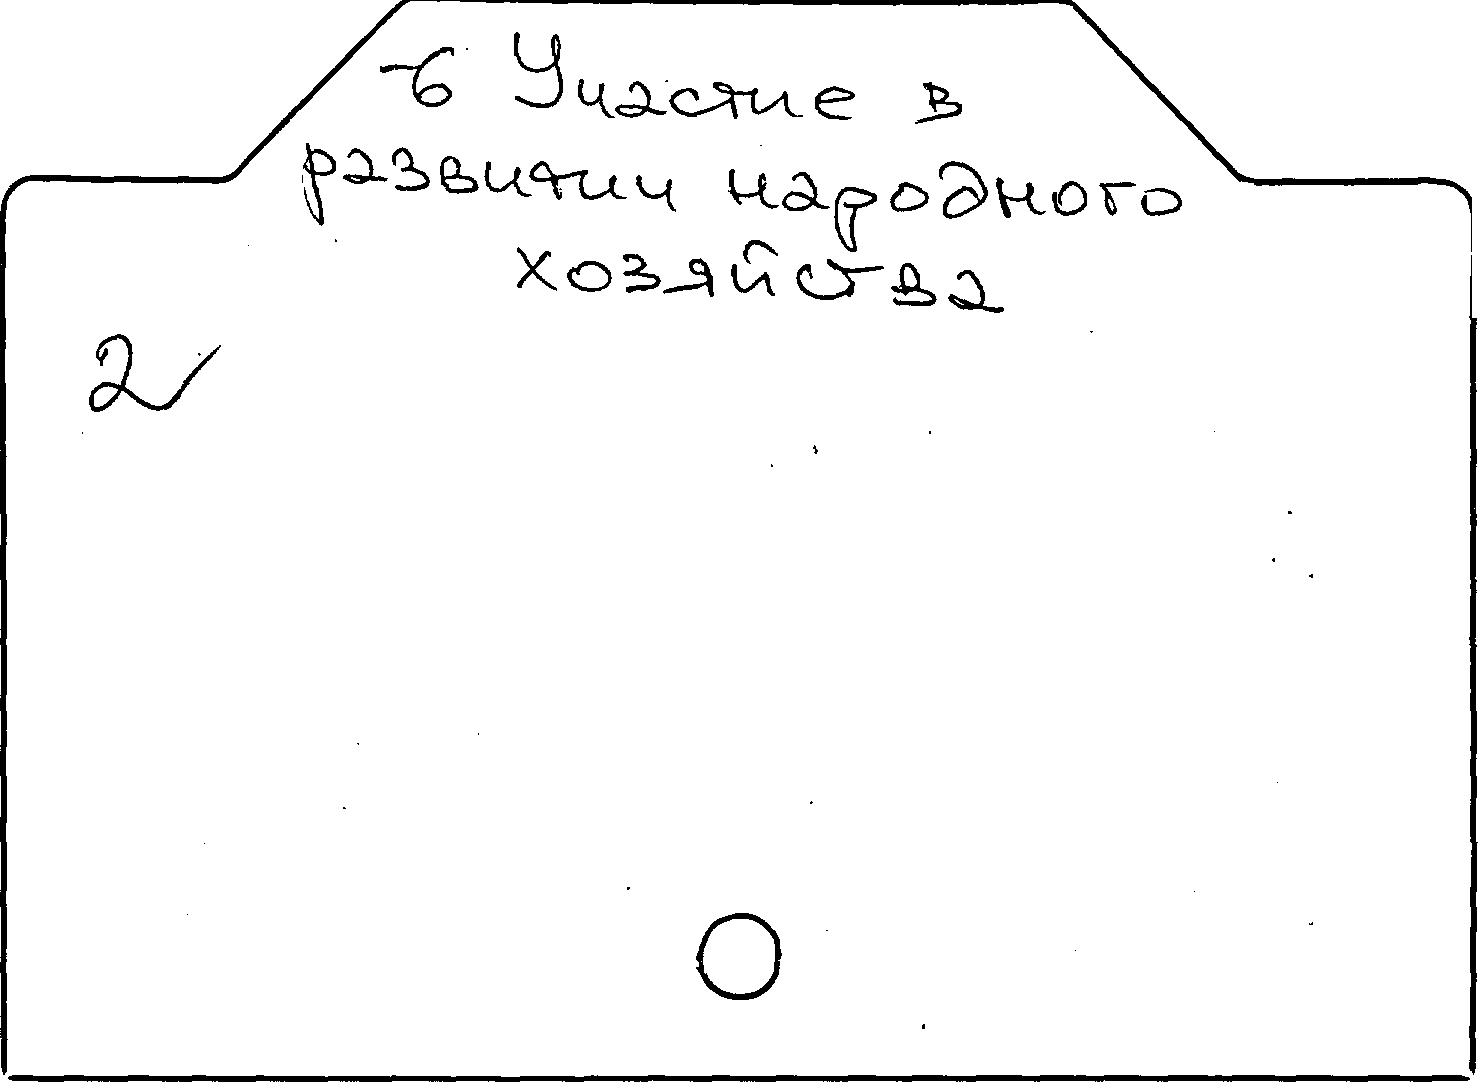 -6 Участие в
развитии народного
хозяйства
2✓